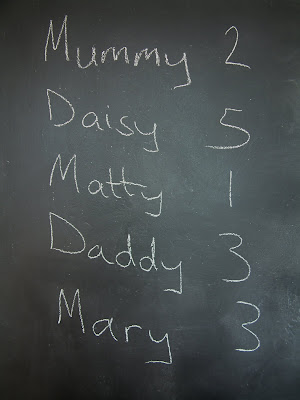 Mummy 2
Daisy 5
Matty 1
Daddy 3
Mary 3